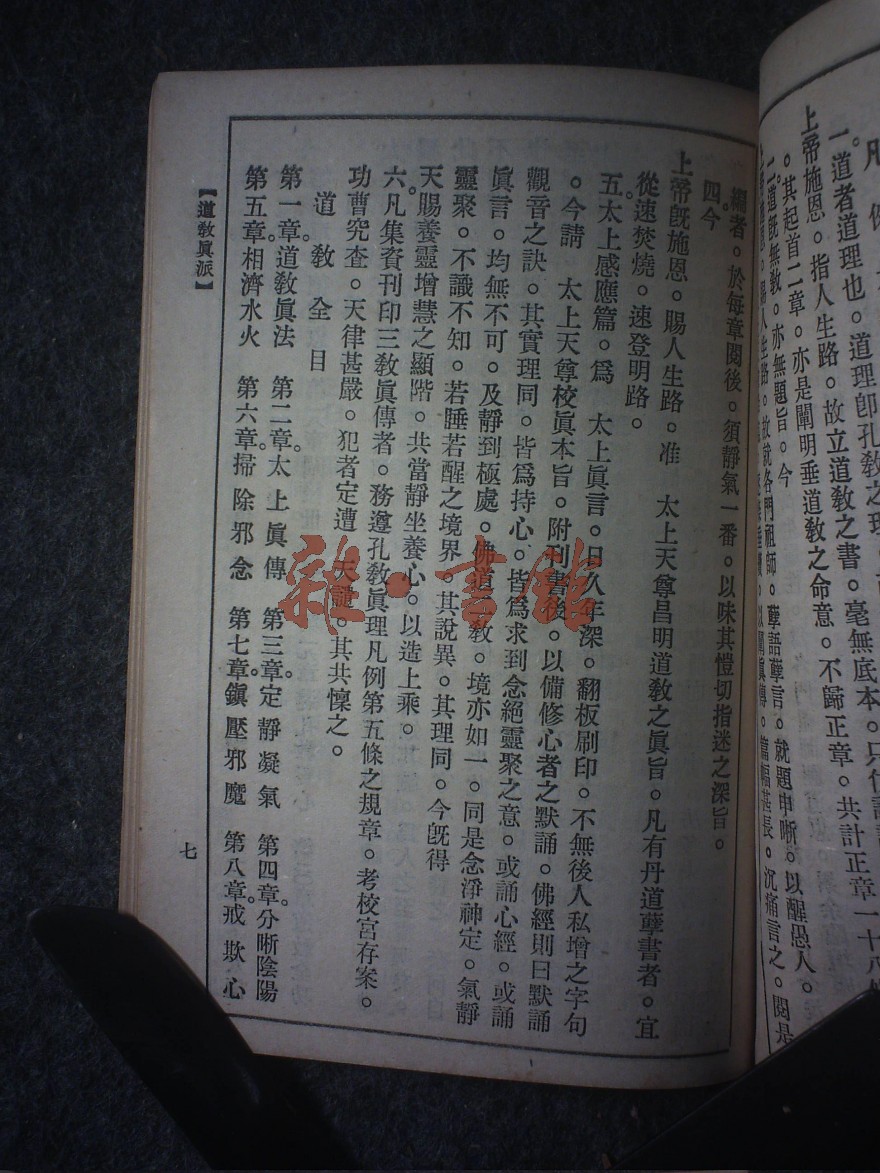 凡 例
一道者道理也。道理卽孔敎之理。
上帝施恩。指人生路。故立道敎之書。毫無底本。只
。其起首二章。亦是闡明垂道敎之命意。不歸正章。共計正章一十八
二道旣無敎。亦無題旨。今
人生路。故就各門祖師。孽語孽言。就題申晰。以醒愚人。
眞傳。篇幅甚長。沉痛言之。閱是
編者。於每章閱後。須靜氣一番。以味其愷切指迷之深旨。
四今
上帝旣施恩。賜人生路。准 太上天尊昌明道敎之眞旨。凡有丹道孽書者。宜
從速焚燒。速登明路。
五太上感應篇。爲 太上眞言。日久年深。翻板刷印。不無後人私增之字句
。今請 太上天尊校眞本旨。附刊書後。以備修心者之默誦。佛經則曰默誦
觀音之訣。其實理同。皆爲持心。皆爲求到念絕靈聚之意。或誦心經。或誦
眞言。均無不可。及靜到極處。佛道二敎。境亦如一。同是念淨神定。氣靜
靈聚。不識不知。若睡若醒之境界。其說異。其理同。今旣得
天賜養靈增慧之顯階。共當靜坐養心。以造上乘。
六凡集資刊印三敎眞傳者。務遵孔敎眞理凡例第五條之規章。考校宮存案。
功曹究查。天律甚嚴。犯者定遭 天譴。其共懍之。
道敎全目
第一章。道敎眞法 第二章。太上眞傳 第三章。定靜凝氣 第四章。分晰陰陽
第五章。相濟水火 第六章。掃除邪念 第七章。鎭壓邪魔 第八章。戒欺心
【道敎眞派】
七
雜·書館